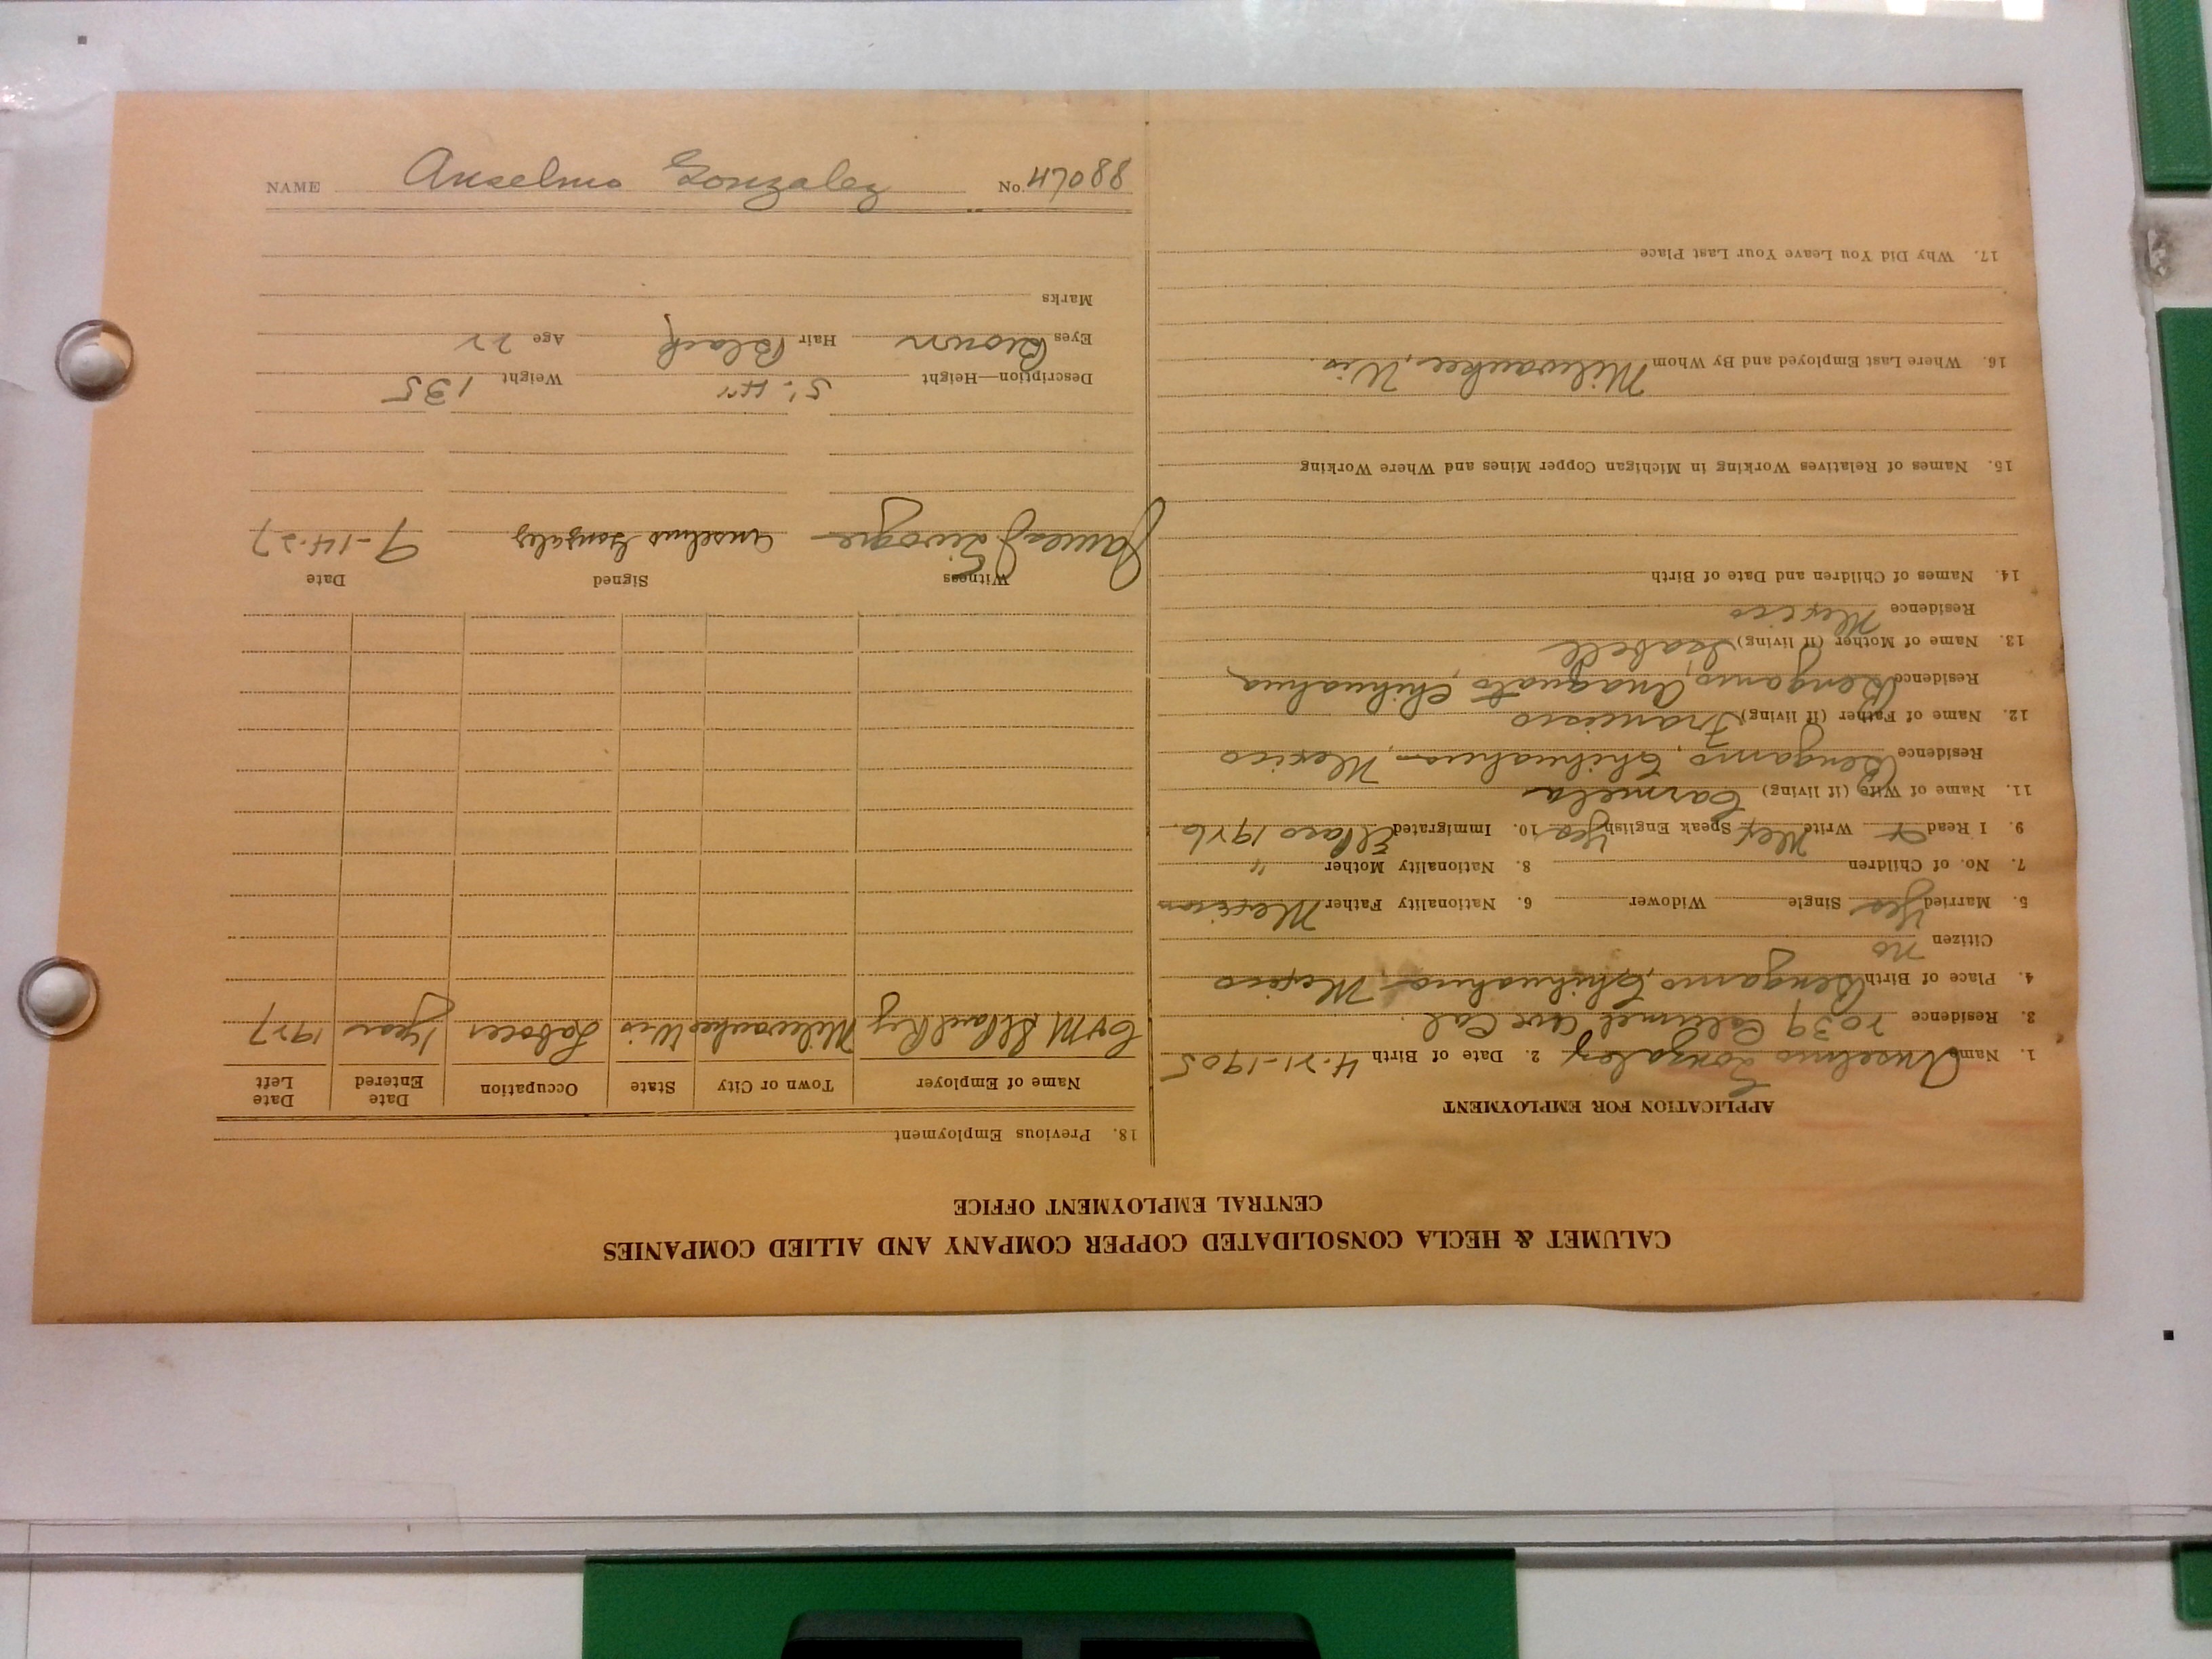 NAME Anselmo Gonzalez No. 47088
CALUMET & HECLA CONSOLIDATED COPPER COMPANY AND ALLIED COMPANIES
CENTRAL EMPLOYMENT OFFICE
APPLICATION FOR EMPLOYMENT
1. Name Anselmo Gonzalez 2. Date of Birth 4-21-1905
3. Residence 2039 Calumet Ave Cal.
4. Place of Birth Bengamo, Chihuahua, Mexico
Citizen no
5. Married Yes Single Widower 6. Nationality Father Mexican
7. No. of Children 8. Nationality Mother "
9. I Read Write Mex Speak English Yes 10. Immigrated El Paso 1926.
11. Name of Wife (if living) Carmela
Residence Bengamo, Chihuahua, Mexico
12. Name of Father (if living) Francisco
Residence Bengamo, Chihuahua
13. Name of Mother (if living) Isabell
Residence Mexico
14. Names of Children and Date of Birth
15. Names of Relatives Working in Michigan Copper Mines and Where Working
16. Where Last Employed and By Whom Milwaukee, Wis.
17. Why Did You Leave Your Last Place
18. Previous Employment
Name of Employer Town or City State Occupation Date Entered Date Left
C & M St Paul Ry Milwaukee Wis Laborer 1 year 1927
Witness Signed Date
James Anselmo Gonzalez 9-14-27
Description—Height 5' 4" Weight 135
Eyes Brown Hair Black Age 22
Marks